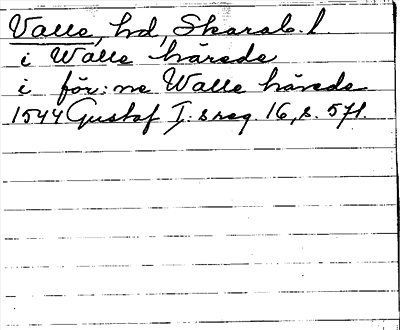 Valle, hd, Skarab. l.
i Walle härede
i för:ne Walle härede
1544 Gustaf I:s reg. 16, s. 571.